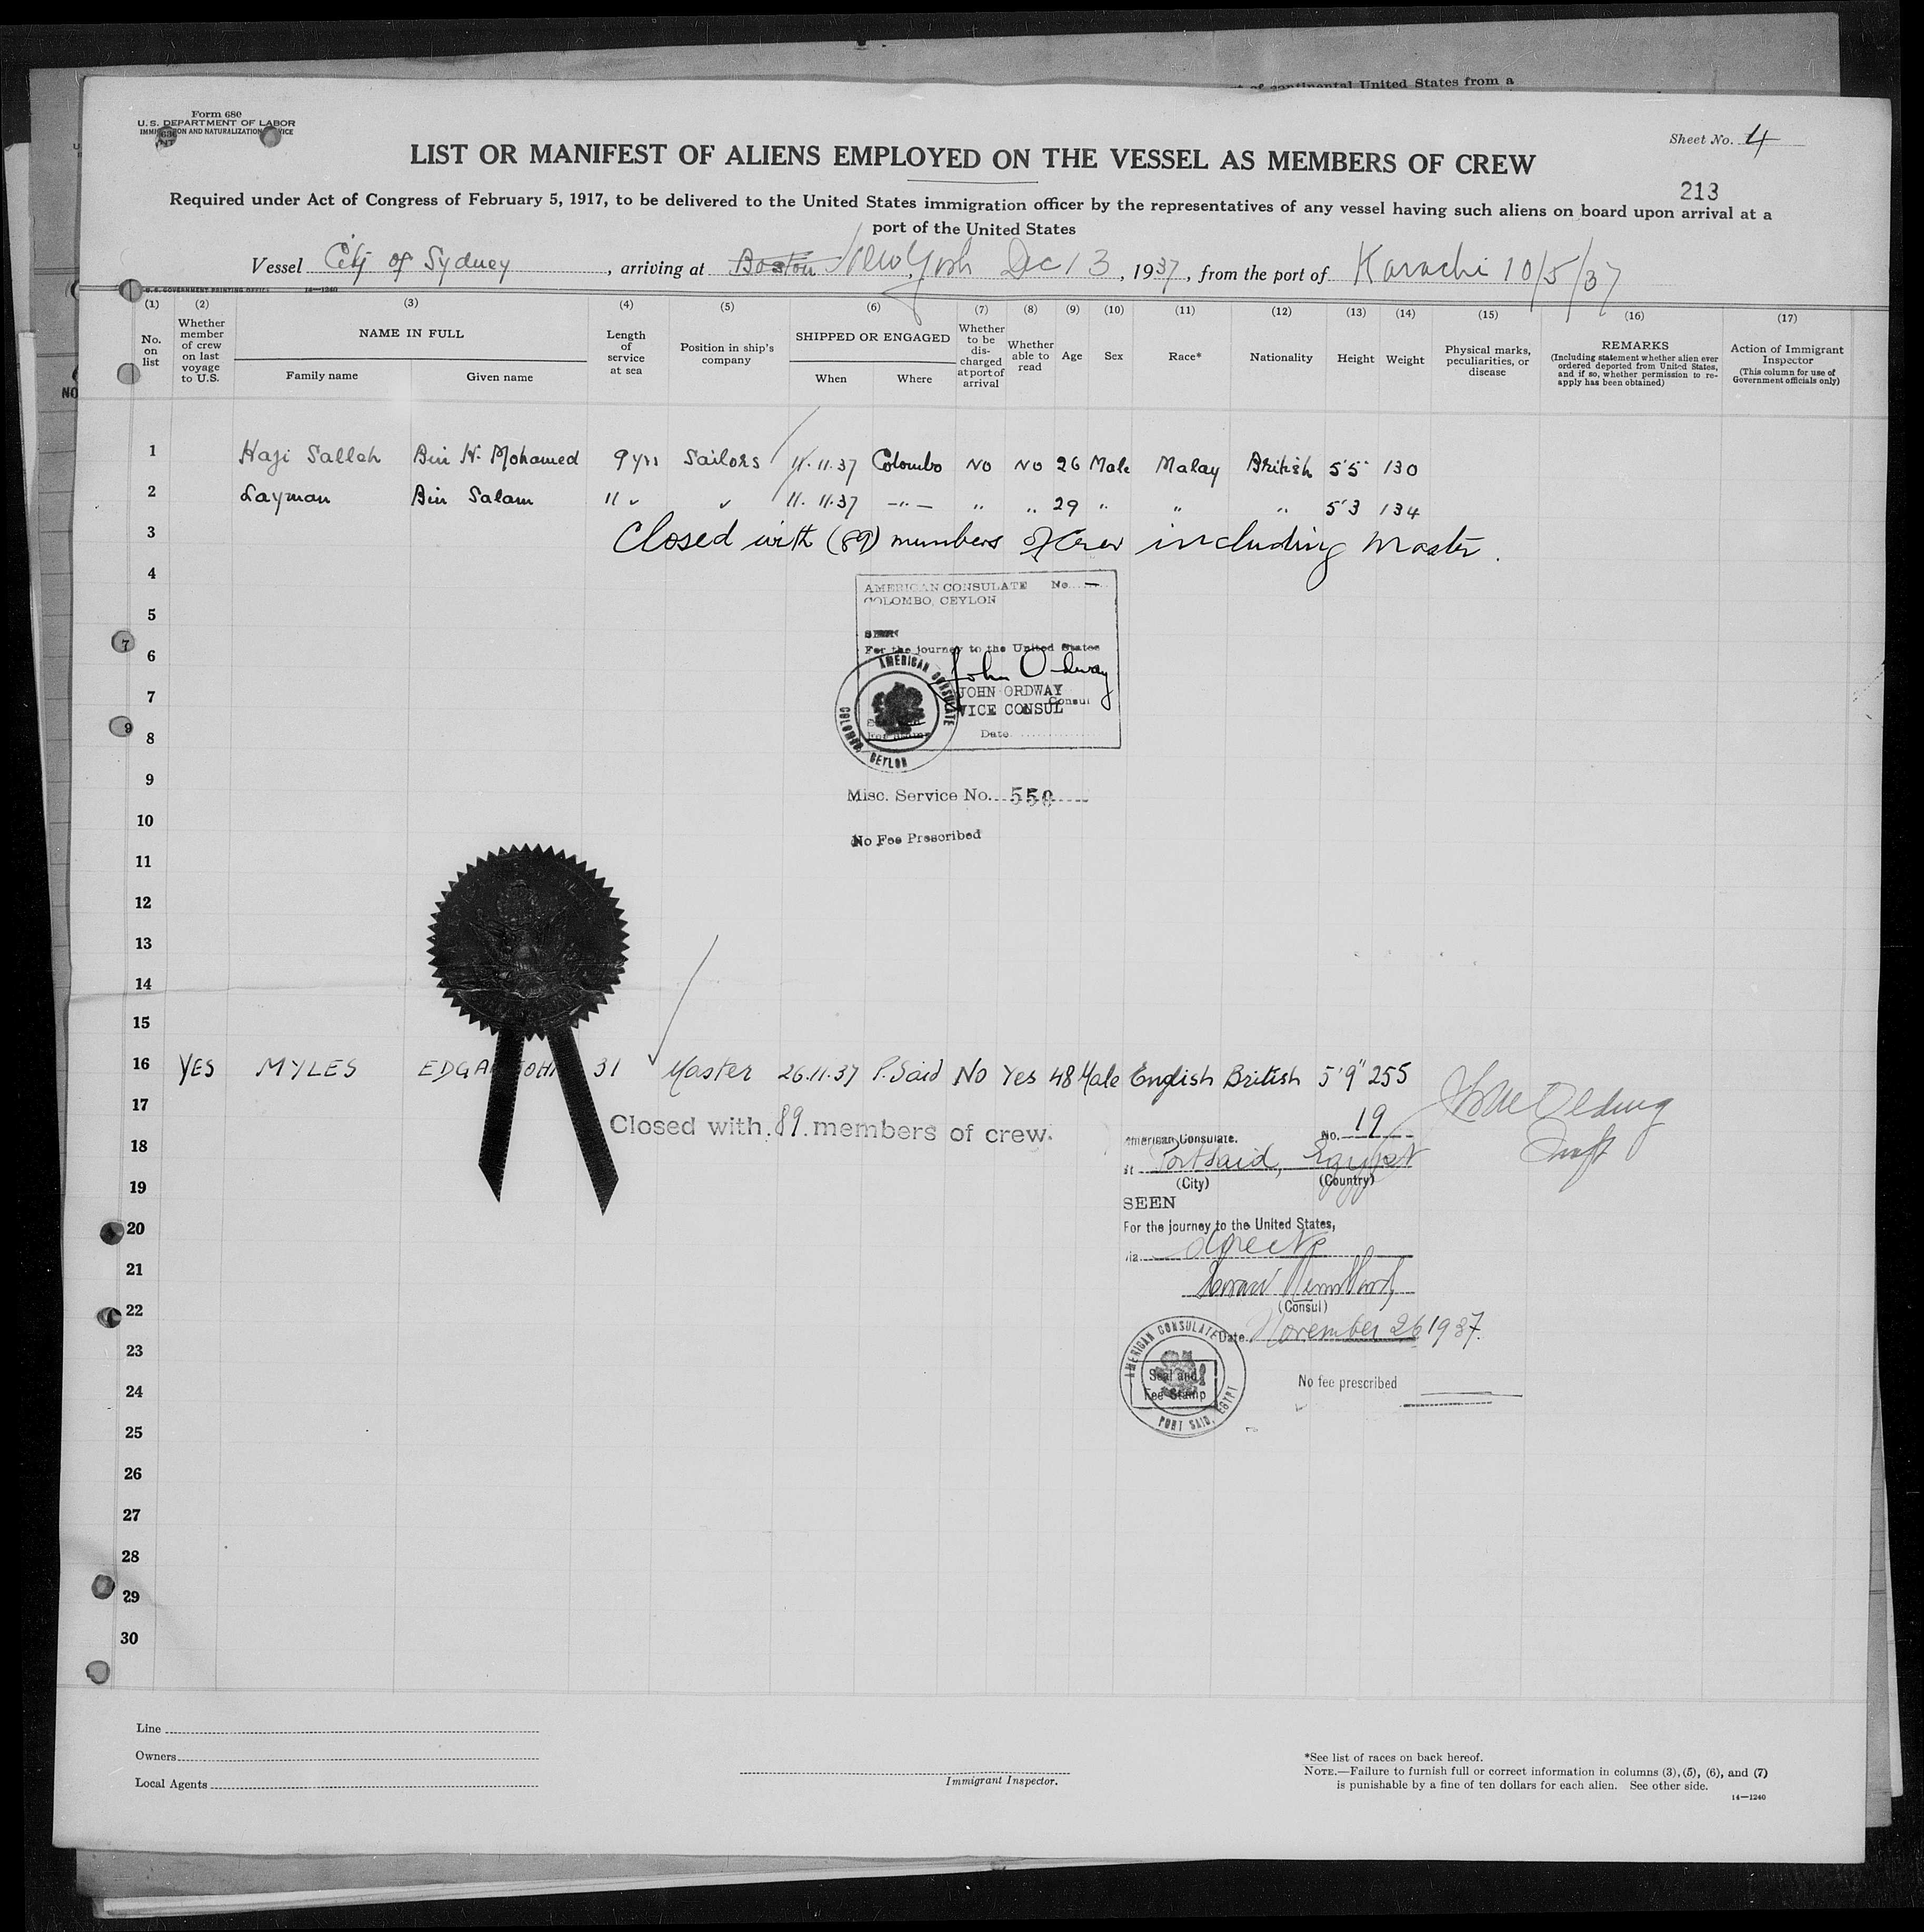 of continental United States from a
Form 680
U. S. DEPARTMENT OF LABOR
IMMIGRATION AND NATURALIZATION SERVICE
Sheet No. 4
LIST OR MANIFEST OF ALIENS EMPLOYED ON THE VESSEL AS MEMBERS OF CREW
213
Required under Act of Congress of February 5, 1917, to be delivered to the United States immigration officer by the representatives of any vessel having such aliens on board upon arrival at a
port of the United States
Vessel City of Sydney, arriving at Boston New York Dec 13, 1937, from the port of Karachi 10/5/37
U. S. GOVERNMENT PRINTING OFFICE 14—1240
(1) (2) (3) (4) (5) (6) (7) (8) (9) (10) (11) (12) (13) (14) (15) (16) (17)
No. on list
Whether member of crew on last voyage to U.S.
NAME IN FULL
Family name
Given name
Length of service at sea
Position in ship's company
SHIPPED OR ENGAGED
When
Where
Whether to be discharged at port of arrival
Whether able to read
Age
Sex
Race*
Nationality
Height
Weight
Physical marks, peculiarities, or disease
REMARKS
(Including statement whether alien ever ordered deported from United States, and if so, whether permission to reapply has been obtained)
Action of Immigrant Inspector
(This column for use of Government officials only)
1 Haji Salleh Bin H. Mohamed 9 yrs Sailors 11.11.37 Colombo No No 26 Male Malay British 5'5" 130
2 Layman Bin Salam 11 " " 11.11.37 —"— " " 29 " " " 5'3 134
3 Closed with (89) members of Crew including Master.
4
AMERICAN CONSULATE No. —
COLOMBO, CEYLON
5
SEEN
6
For the journey to the United States
John Ordway
7
JOHN ORDWAY
VICE CONSUL
Consul
8
Date
AMERICAN CONSULATE
COLOMBO, CEYLON
9
Misc. Service No. 550
10
No Fee Prescribed
11
12
13
14
15
16 YES MYLES EDGAR JOHN 31 Master 26.11.37 P. Said No Yes 48 Male English British 5'9" 255
17
Closed with 89 members of crew.
American Consulate. No. 19
18
at Port Said, Egypt
(City) (Country)
19
SEEN
20
For the journey to the United States,
via direct
21
22
(Consul)
Date November 26 1937.
23
AMERICAN CONSULATE
PORT SAID, EGYPT
Seal and
Fee Stamp
24
No fee prescribed
25
26
27
28
29
30
Line
Owners
Local Agents
Immigrant Inspector.
*See list of races on back hereof.
NOTE.—Failure to furnish full or correct information in columns (3), (5), (6), and (7)
is punishable by a fine of ten dollars for each alien. See other side.
14—1240